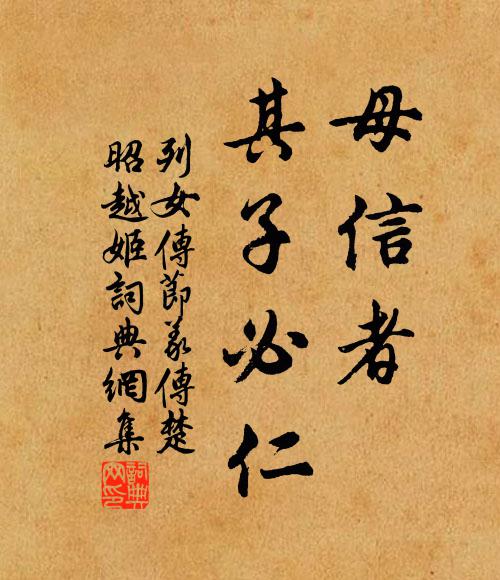 母信者
其子必仁
列女傳節義傳楚
昭越姬詞典網集
詞典
网印